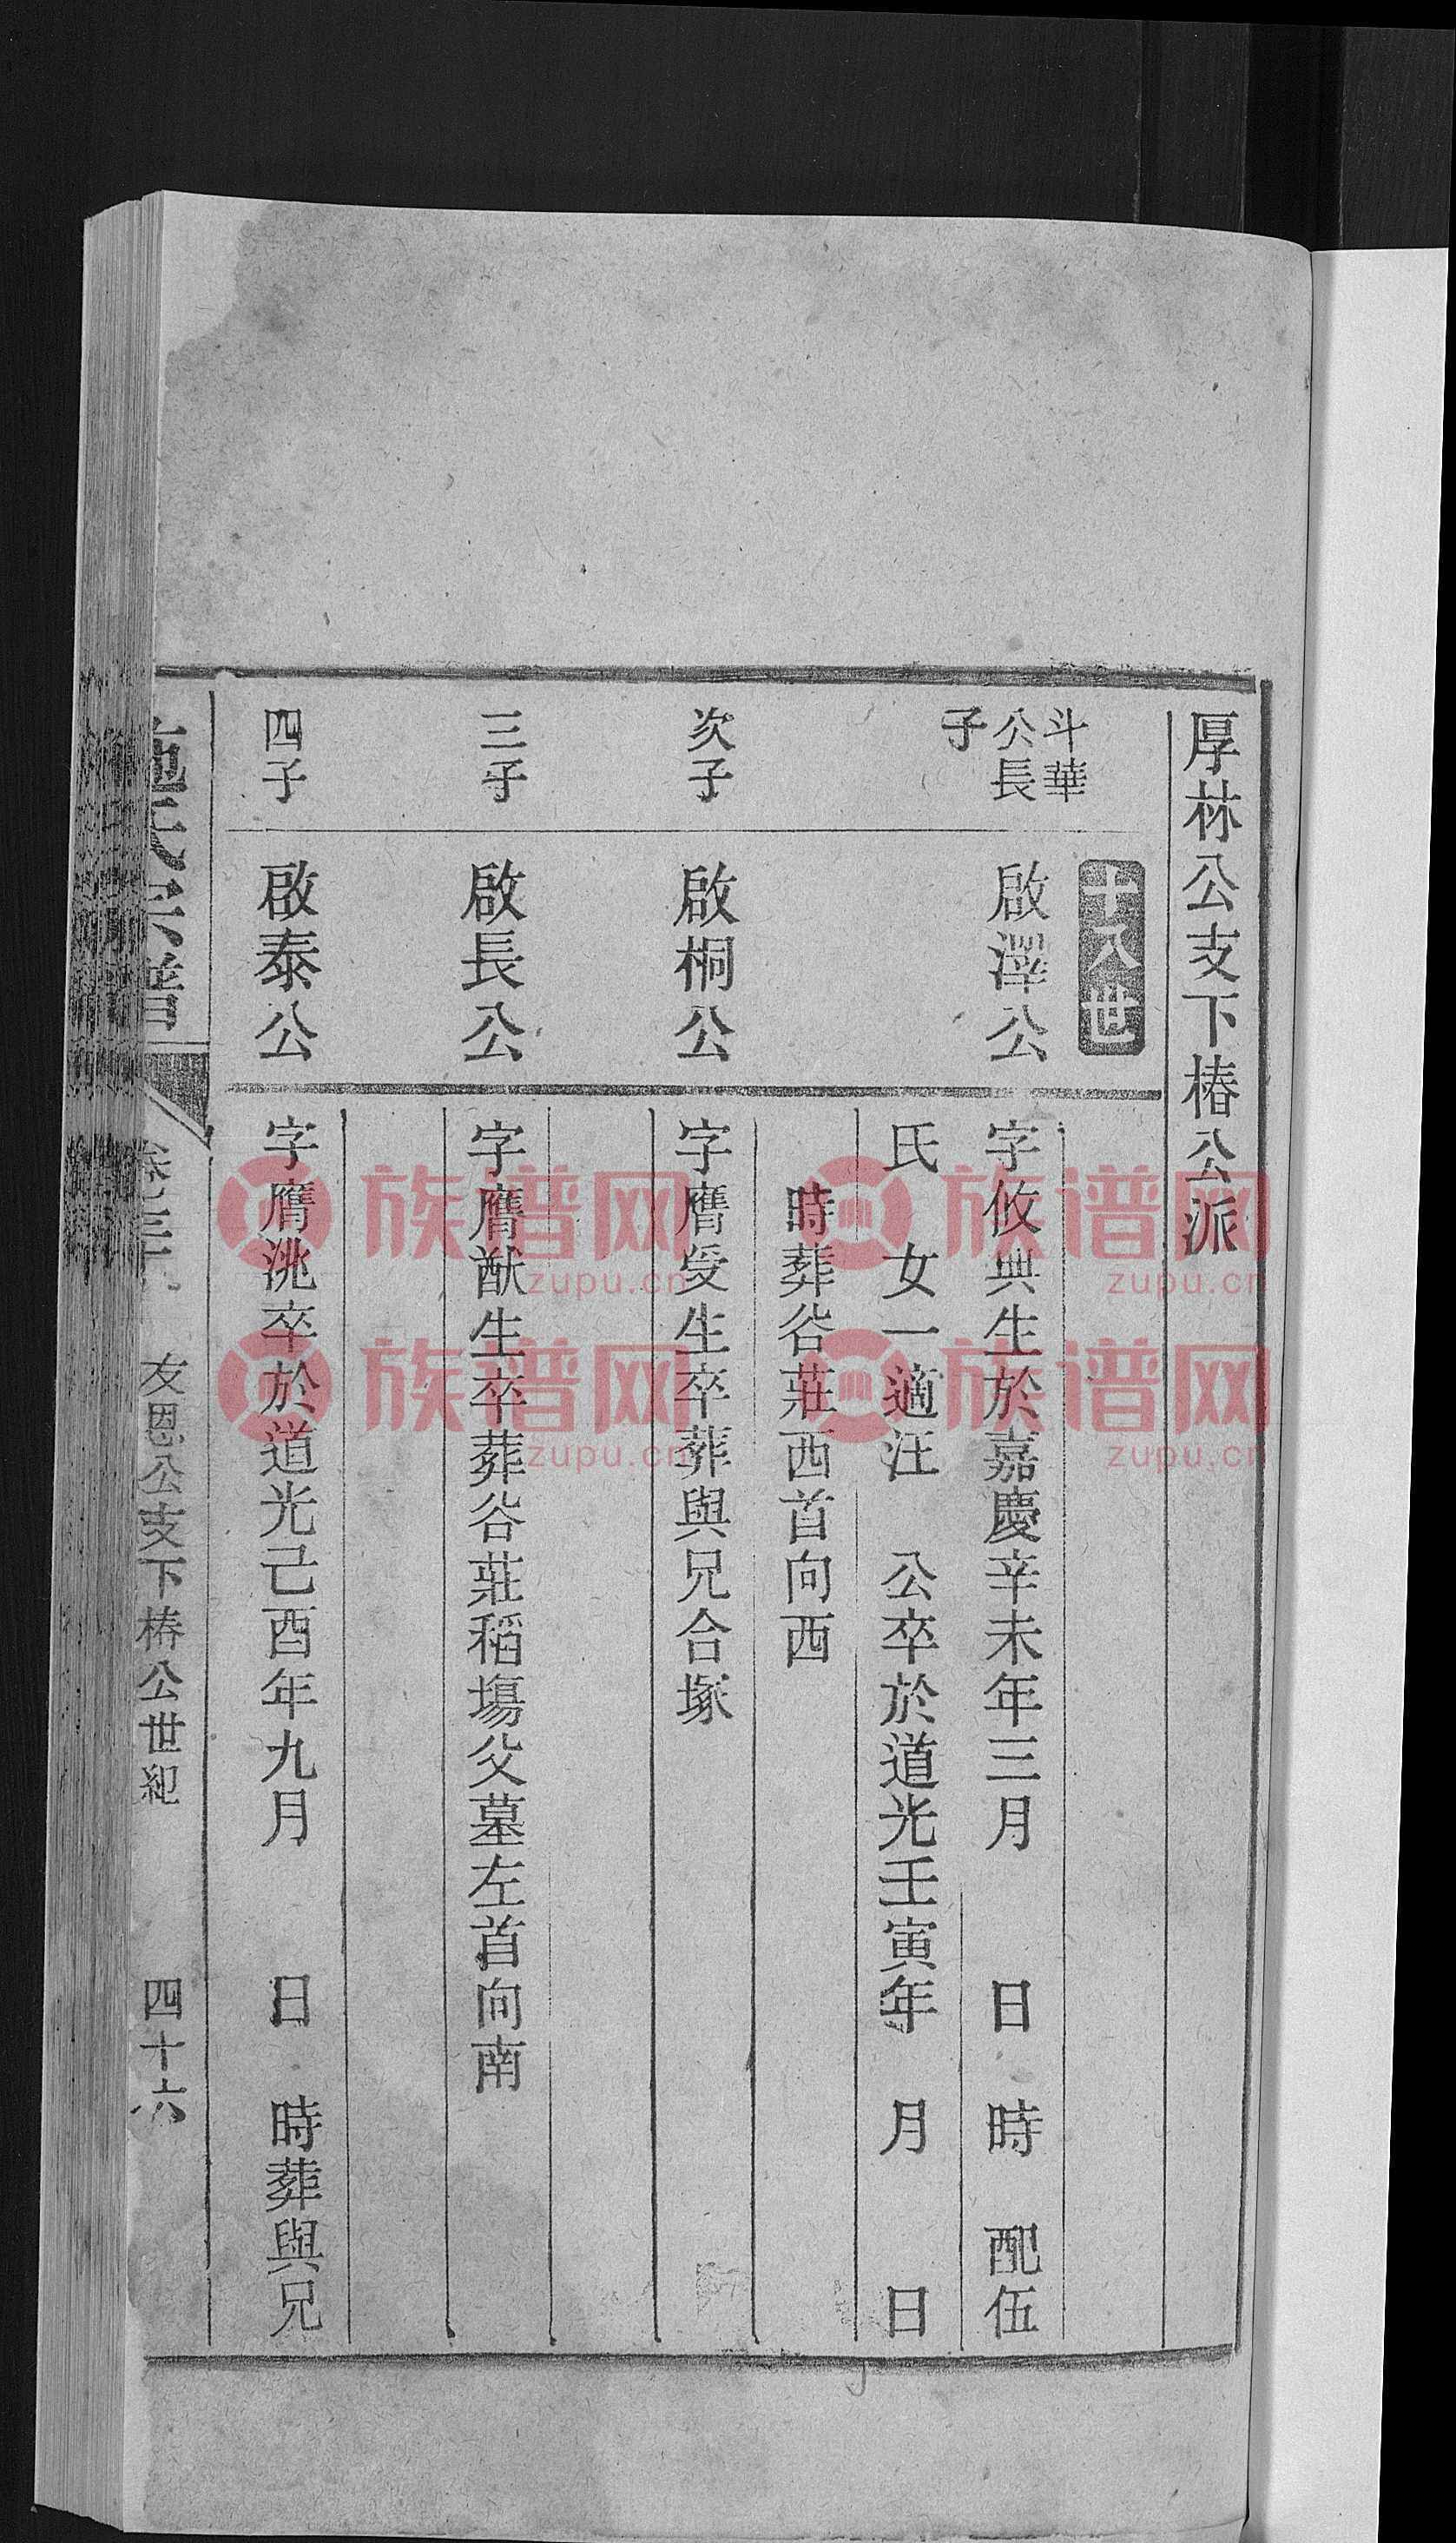 厚林公支下椿公派
十八世
斗華
公長
子
啟澤公
字攸興生於嘉慶辛未年三月　日　時　配伍
氏　女一適汪　公卒於道光壬寅年　月　日
時葬谷莊西首向西
次子
啟桐公
字膺受生卒葬與兄合塚
三子
啟長公
字膺猷生卒葬谷莊稻塲父墓左首向南
四子
啟泰公
字膺洮卒於道光己酉年九月　日　時葬與兄
施氏宗譜
友恩公支下椿公世紀
四十六
族谱网
zupu.cn
族谱网
zupu.cn
族谱网
zupu.cn
族谱网
zupu.cn